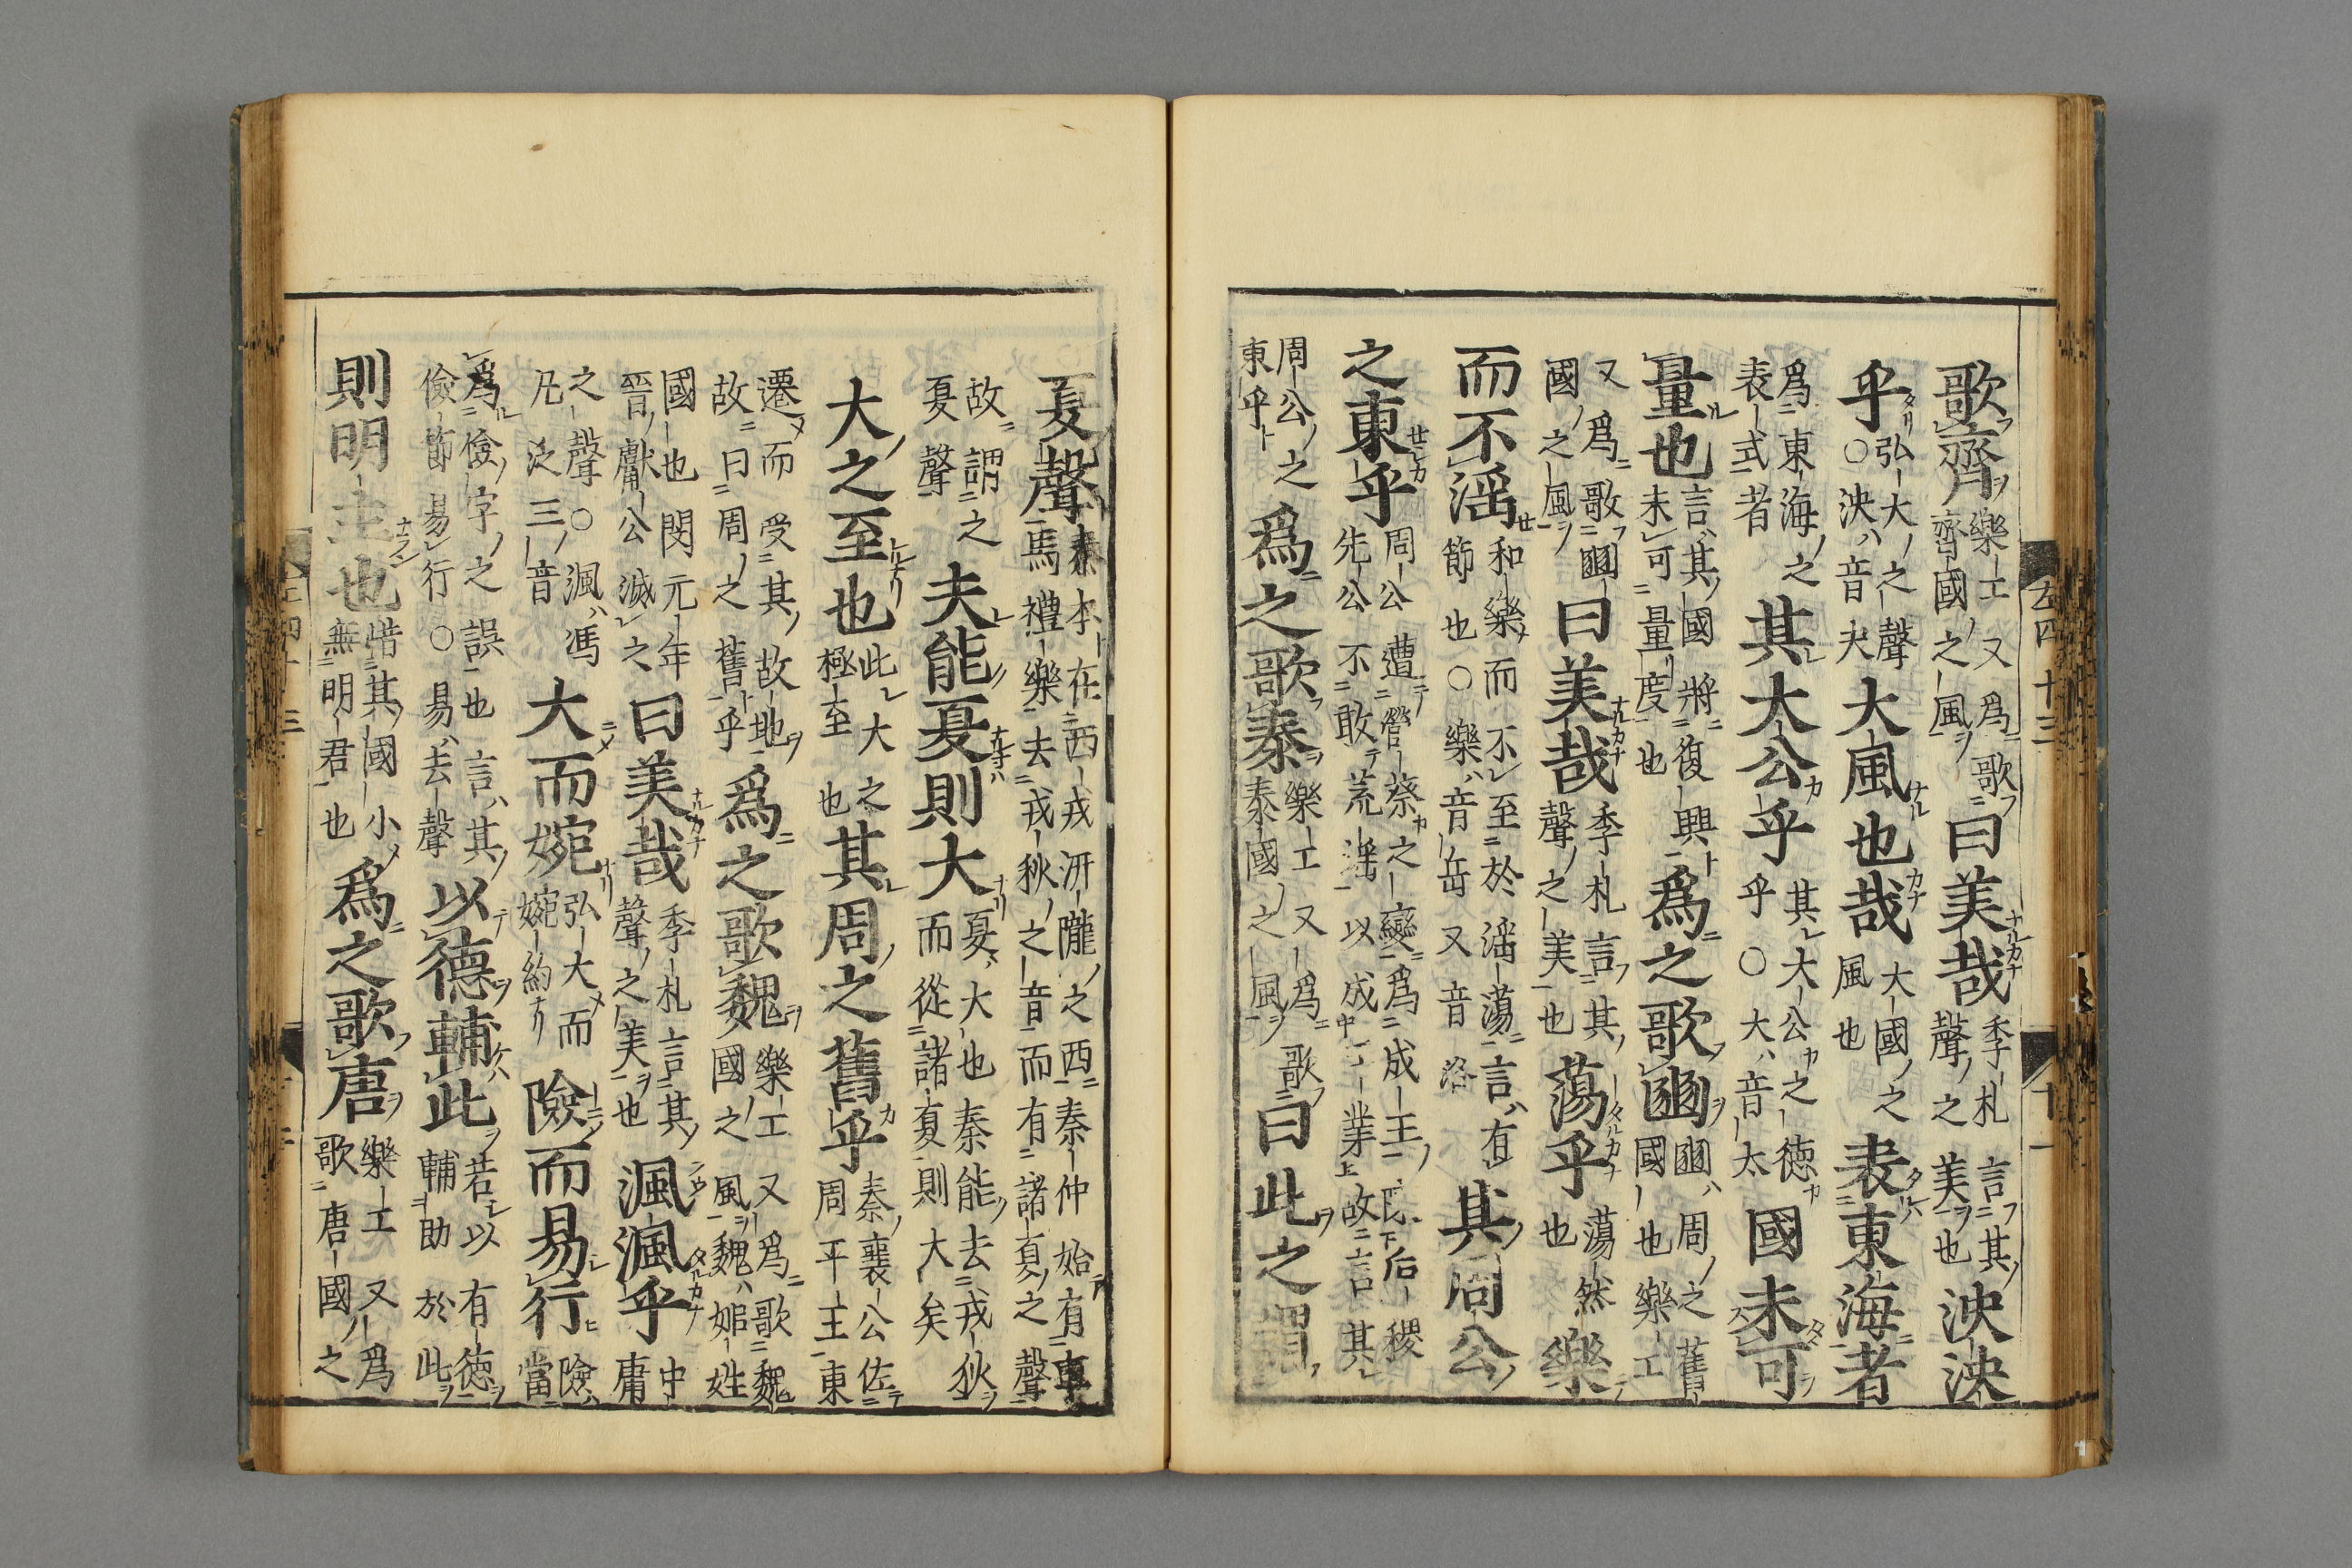 歌齊樂工又爲歌齊國之風曰美哉季札言其聲之美也泱泱
乎弘大之聲○泱音夬大風也哉大國之風也表東海者
爲東海之表式者其大公乎其大公之德乎○大音太國未可
量也言其國將復興未可量度也爲之歌豳豳周之舊國也樂工
又爲歌豳國之風曰美哉季札言其聲之美也蕩乎蕩然也樂
而不滛和樂而不至於滛蕩言有節也○樂音岳又音洛其周公
之東乎周公遭管蔡之變爲成王后稷先公不敢荒滛以成業故言其
周公之東乎爲之歌秦樂工又爲歌秦國之風曰此之謂
左四十三 十一
夏聲秦本在西戎汧隴之西秦仲始有車馬禮樂去戎狄之音而有諸夏之聲
故謂之夏聲夫能夏則大夏大也秦能去戎狄而從諸夏則大矣
大之至也此大之極至也其周之舊乎秦襄公佐周平王東
遷而受其故地故曰周之舊乎爲之歌魏樂工又爲歌魏國之風魏姬姓
國也閔元年晉獻公滅之曰美哉季札言其聲之美也渢渢乎中庸
之聲○渢馮凡泛三音大而婉弘大而婉約險而易行險當
爲儉字之誤也言其儉節易行○易去聲以德輔此若以有德輔助於此
則明主也惜其國小無明君也爲之歌唐樂工又爲歌唐國之